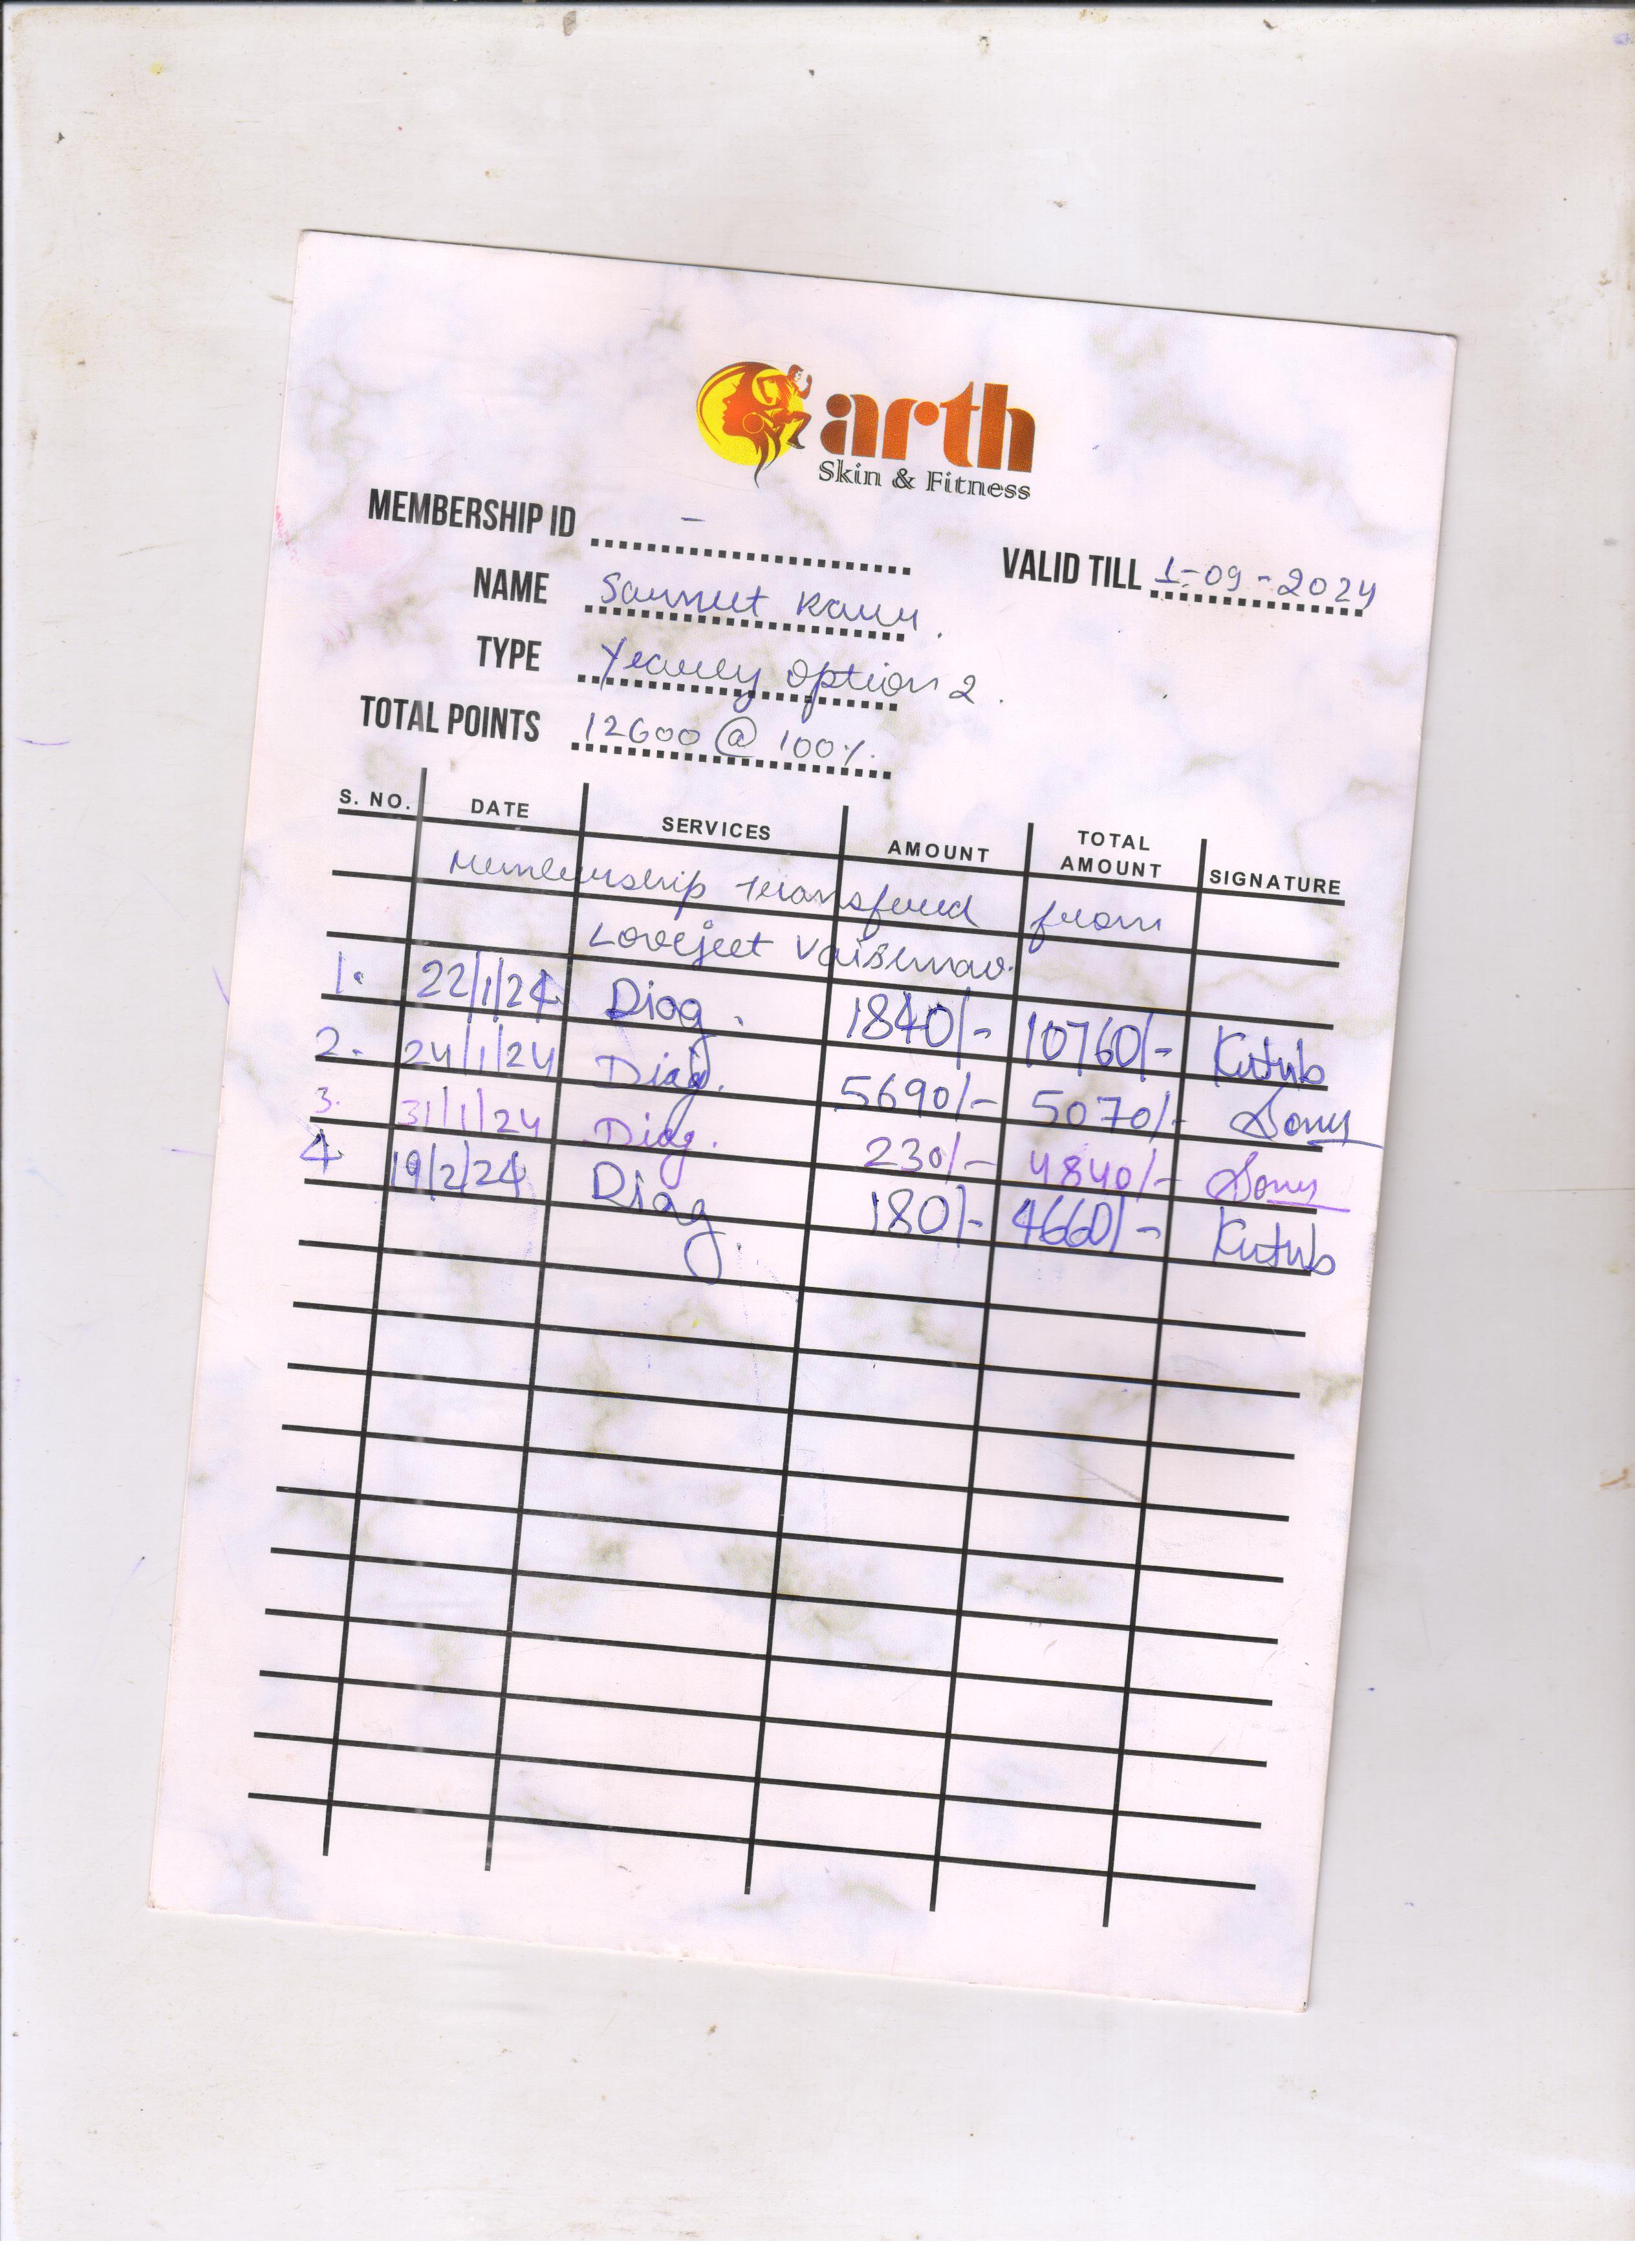 arth
Skin & Fitness
MEMBERSHIP ID -
VALID TILL 1-09-2024
NAME Kaur.
TYPE Yearly option 2.
TOTAL POINTS 12600 @ 100%.
S. NO. DATE SERVICES AMOUNT TOTAL AMOUNT SIGNATURE
Membership transfered from
Lovejeet
1. 22/1/24 Diag. 1840/- 10760/- Kutub
2. 24/1/24 Diag. 5690/- 5070/- Sonu
3. 31/1/24 Diag. 230/- 4840/- Sonu
4 19/2/24 Diag. 180/- 4660/- Kutub